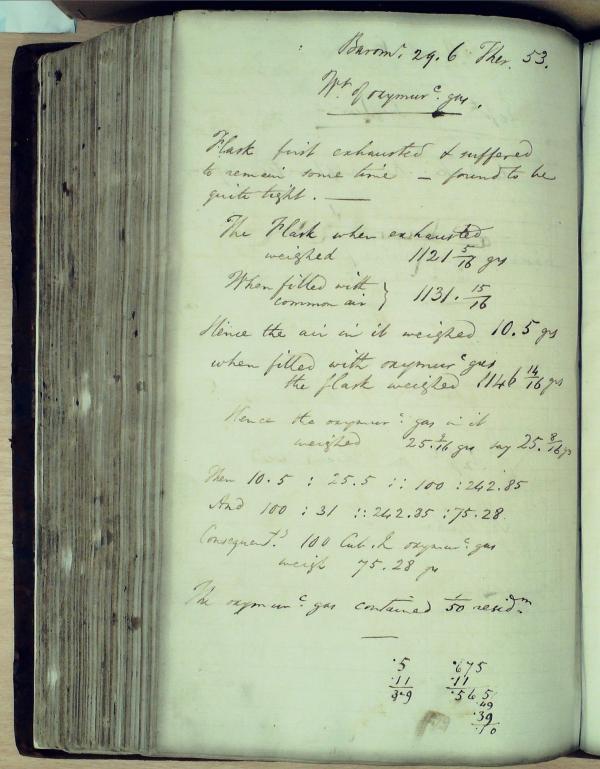 Barom.r 29.6 Ther. 53.
Wt. of oxymurc. gas.
Flask first exhausted & suffered
to remain some time — found to be
quite tight. —
The Flask when exhausted
weighed 1121 5/16 grs
When filled with
common air } 1131. 15/16
Hence the air in it weighed 10.5 grs
when filled with oxymurc gas
the flask weighed 1146 14/16 grs
Hence the oxymurc. gas in it
weighed 25. 9/16 grs say 25. 8/16 grs
Then 10.5 : 25.5 :: 100 : 242.85
And 100 : 31 :: 242.85 : 75.28
Consequent.y 100 Cub. In oxymurc. gas
weigh 75.28 grs
The oxymurc. gas contained 1/50 residm
—
.5 .675
.11 .11
.39 .565
.49
.39
.10